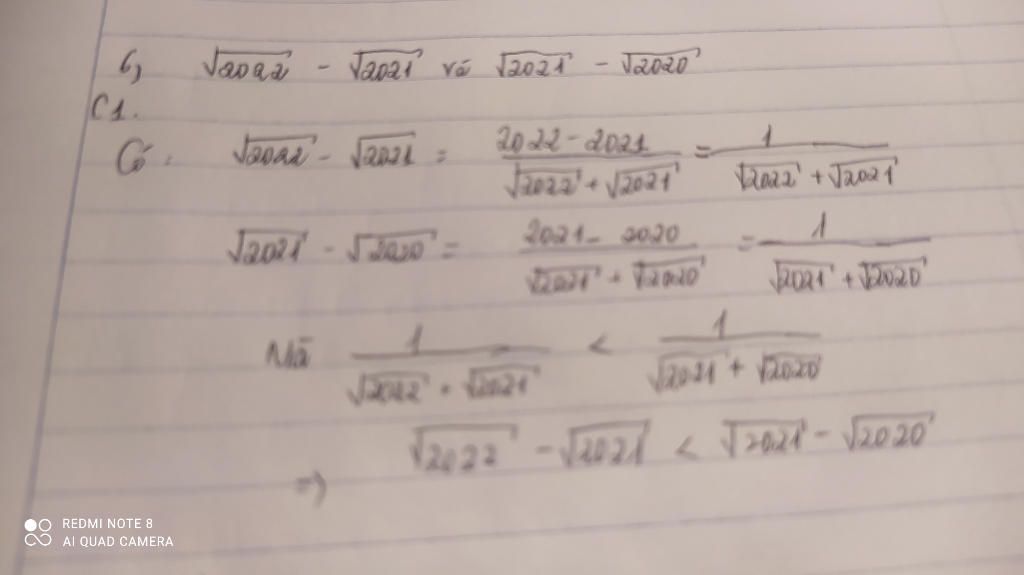 b, √2022 - √2021 và √2021 - √2020
C1.
Có: √2022 - √2021 = (2022 - 2021)/(√2022 + √2021) = 1/(√2022 + √2021)
√2021 - √2020 = (2021 - 2020)/(√2021 + √2020) = 1/(√2021 + √2020)
Mà 1/(√2022 + √2021) < 1/(√2021 + √2020)
=> √2022 - √2021 < √2021 - √2020
REDMI NOTE 8
AI QUAD CAMERA